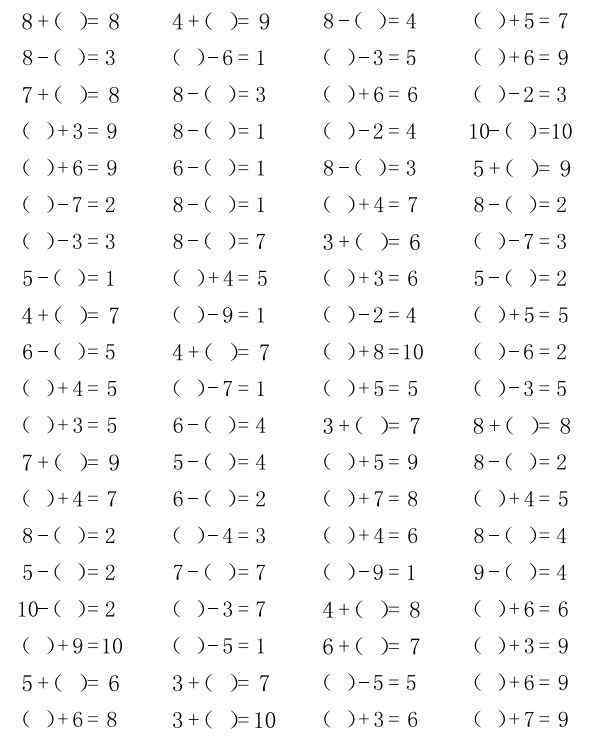 8+( )= 8 4+( )= 9 8-( )= 4 ( )+5= 7
8-( )= 3 ( )-6= 1 ( )-3= 5 ( )+6= 9
7+( )= 8 8-( )= 3 ( )+6= 6 ( )-2= 3
( )+3= 9 8-( )= 1 ( )-2= 4 10-( )=10
( )+6= 9 6-( )= 1 8-( )= 3 5+( )= 9
( )-7= 2 8-( )= 1 ( )+4= 7 8-( )= 2
( )-3= 3 8-( )= 7 3+( )= 6 ( )-7= 3
5-( )= 1 ( )+4= 5 ( )+3= 6 5-( )= 2
4+( )= 7 ( )-9= 1 ( )-2= 4 ( )+5= 5
6-( )= 5 4+( )= 7 ( )+8=10 ( )-6= 2
( )+4= 5 ( )-7= 1 ( )+5= 5 ( )-3= 5
( )+3= 5 6-( )= 4 3+( )= 7 8+( )= 8
7+( )= 9 5-( )= 4 ( )+5= 9 8-( )= 2
( )+4= 7 6-( )= 2 ( )+7= 8 ( )+4= 5
8-( )= 2 ( )-4= 3 ( )+4= 6 8-( )= 4
5-( )= 2 7-( )= 7 ( )-9= 1 9-( )= 4
10-( )= 2 ( )-3= 7 4+( )= 8 ( )+6= 6
( )+9=10 ( )-5= 1 6+( )= 7 ( )+3= 9
5+( )= 6 3+( )= 7 ( )-5= 5 ( )+6= 9
( )+6= 8 3+( )= 10 ( )+3= 6 ( )+7= 9